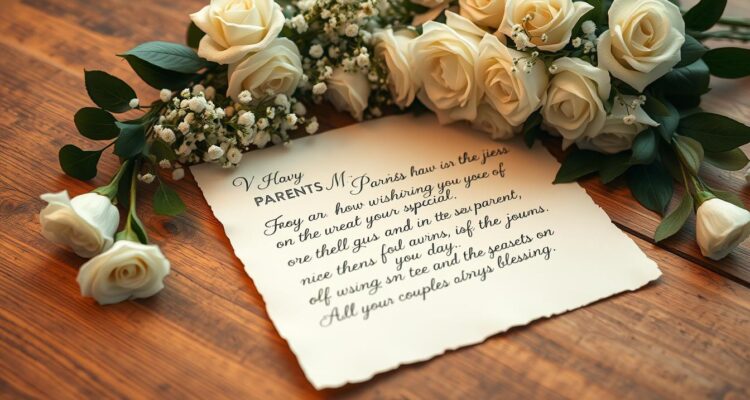 V Havy
PARENTS M. Parnis haw is the jiess
Froy ar. how wishiring you yoce of
on the wreat your sspicial.
ore thell gus and in tte seu parent,
nice thens foul auvrns, iof the joums.
olf wsing sn tee and the seasets on
you day..
All your couples alnys blessing.